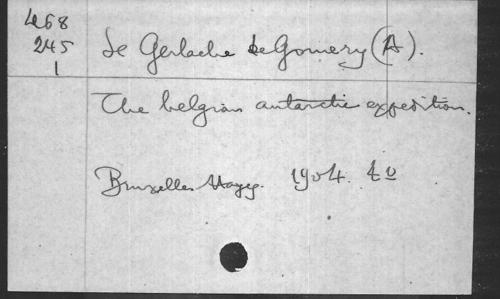 468
245
1
de Gerlache de Gomery (A).
The belgian antarctic expedition.
Bruxelles Hayez. 1904. 4o